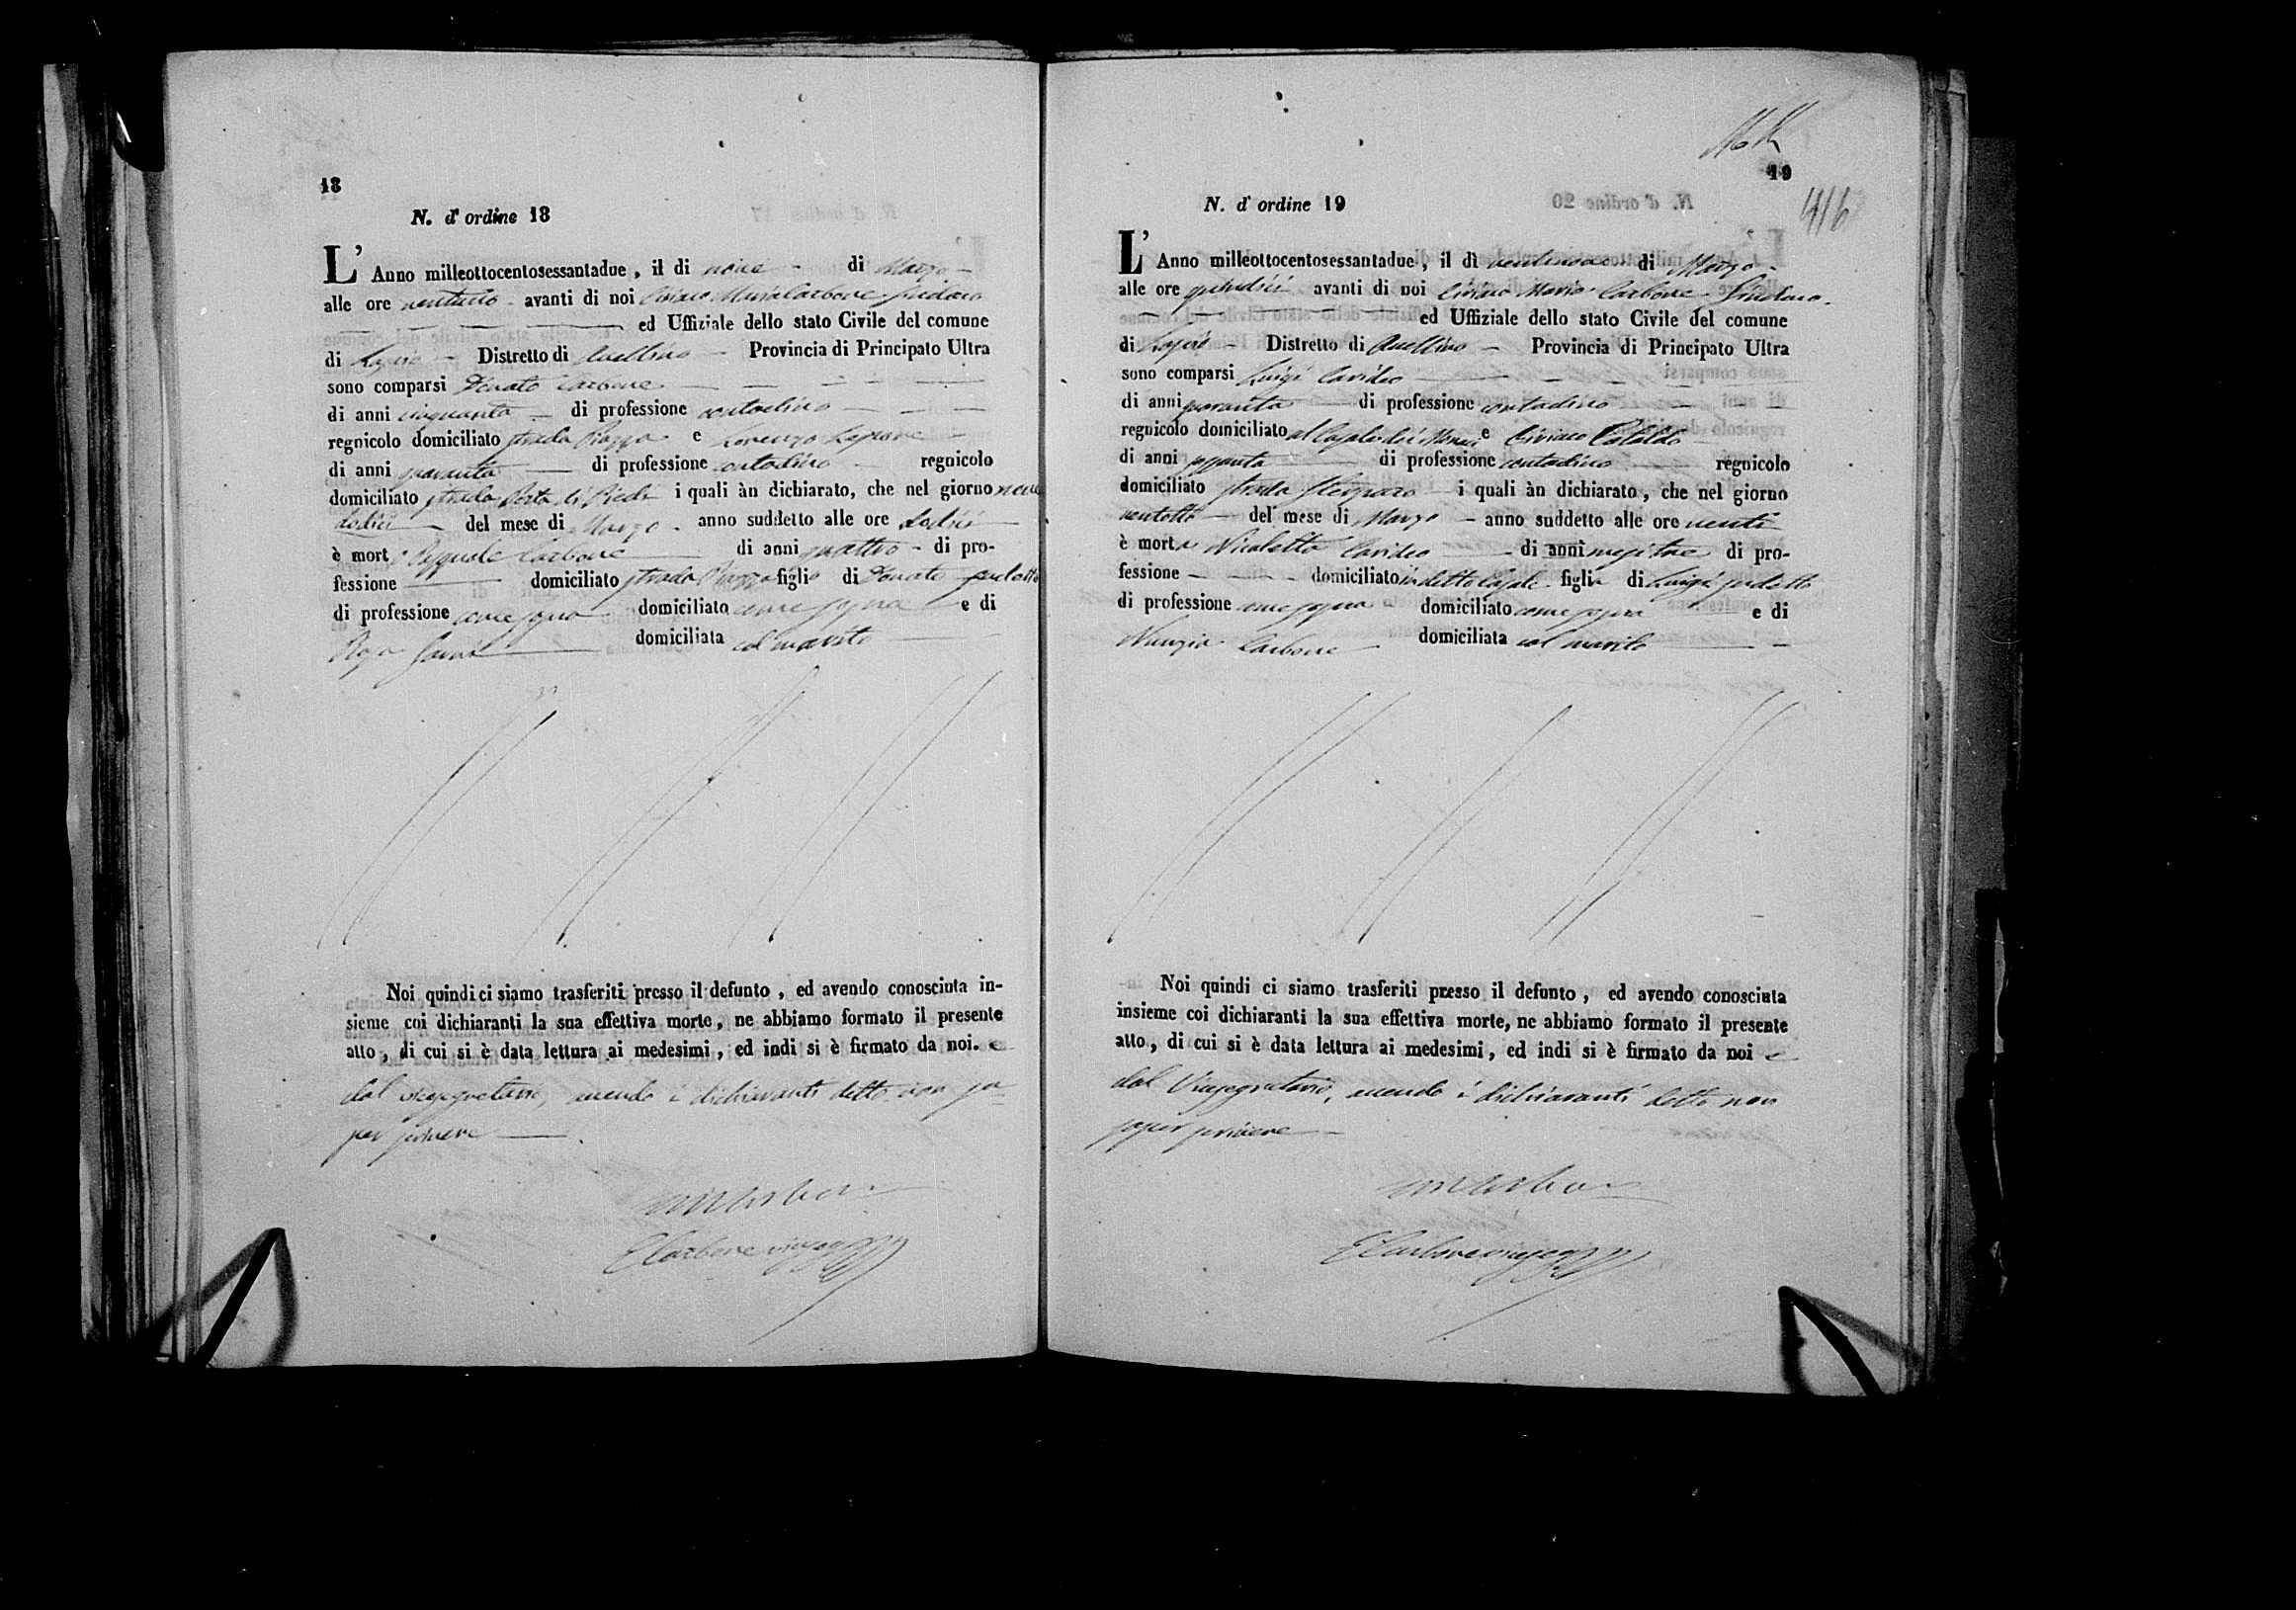 18
N. d' ordine 18
L' Anno milleottocentosessantadue, il di nove di Marzo
alle ore ventuno avanti di noi Ciriaco Maria Carbone Sindaco
ed Uffiziale dello stato Civile del comune
di Lapio Distretto di Avellino Provincia di Principato Ultra
sono comparsi Donato Carbone
di anni cinquanta di professione contadino
regnicolo domiciliato strada Piazza e Lorenzo
di anni quaranta di professione contadino regnicolo
domiciliato strada Porta i quali àn dichiarato, che nel giorno nove
dodici del mese di Marzo anno suddetto alle ore dodici
è morto Pasquale Carbone di anni quattro di pro-
fessione domiciliato strada Piazza figlio di Donato sudetto
di professione come sopra domiciliato come sopra e di
Rosa domiciliata col marito
Noi quindi ci siamo trasferiti presso il defunto, ed avendo conosciuta in-
sieme coi dichiaranti la sua effettiva morte, ne abbiamo formato il presente
atto, di cui si è data lettura ai medesimi, ed indi si è firmato da noi. e
dal vicesegretario, avendo i dichiaranti detto non sa-
per scrivere
Carbone
19
416
N. d' ordine 19
L' Anno milleottocentosessantadue, il dì ventinove di Marzo
alle ore quindici avanti di noi Ciriaco Maria Carbone Sindaco
ed Uffiziale dello stato Civile del comune
di Lapio Distretto di Avellino Provincia di Principato Ultra
sono comparsi Luigi Carideo
di anni quaranta di professione contadino
regnicolo domiciliato al Casale dei e Ciriaco Cataldo
di anni sessanta di professione contadino regnicolo
domiciliato strada i quali àn dichiarato, che nel giorno
ventotto del mese di Marzo anno suddetto alle ore venti
è morta Nicoletta Carideo di anni mesi tre di pro-
fessione domiciliato in detto Casale figlia di Luigi sudetto
di professione come sopra domiciliato come sopra e di
Nunzia Carbone domiciliata col marito
Noi quindi ci siamo trasferiti presso il defunto, ed avendo conosciuta
insieme coi dichiaranti la sua effettiva morte, ne abbiamo formato il presente
atto, di cui si è data lettura ai medesimi, ed indi si è firmato da noi e
dal Vicesegretario, avendo i dichiaranti detto non
saper scrivere
Carbone